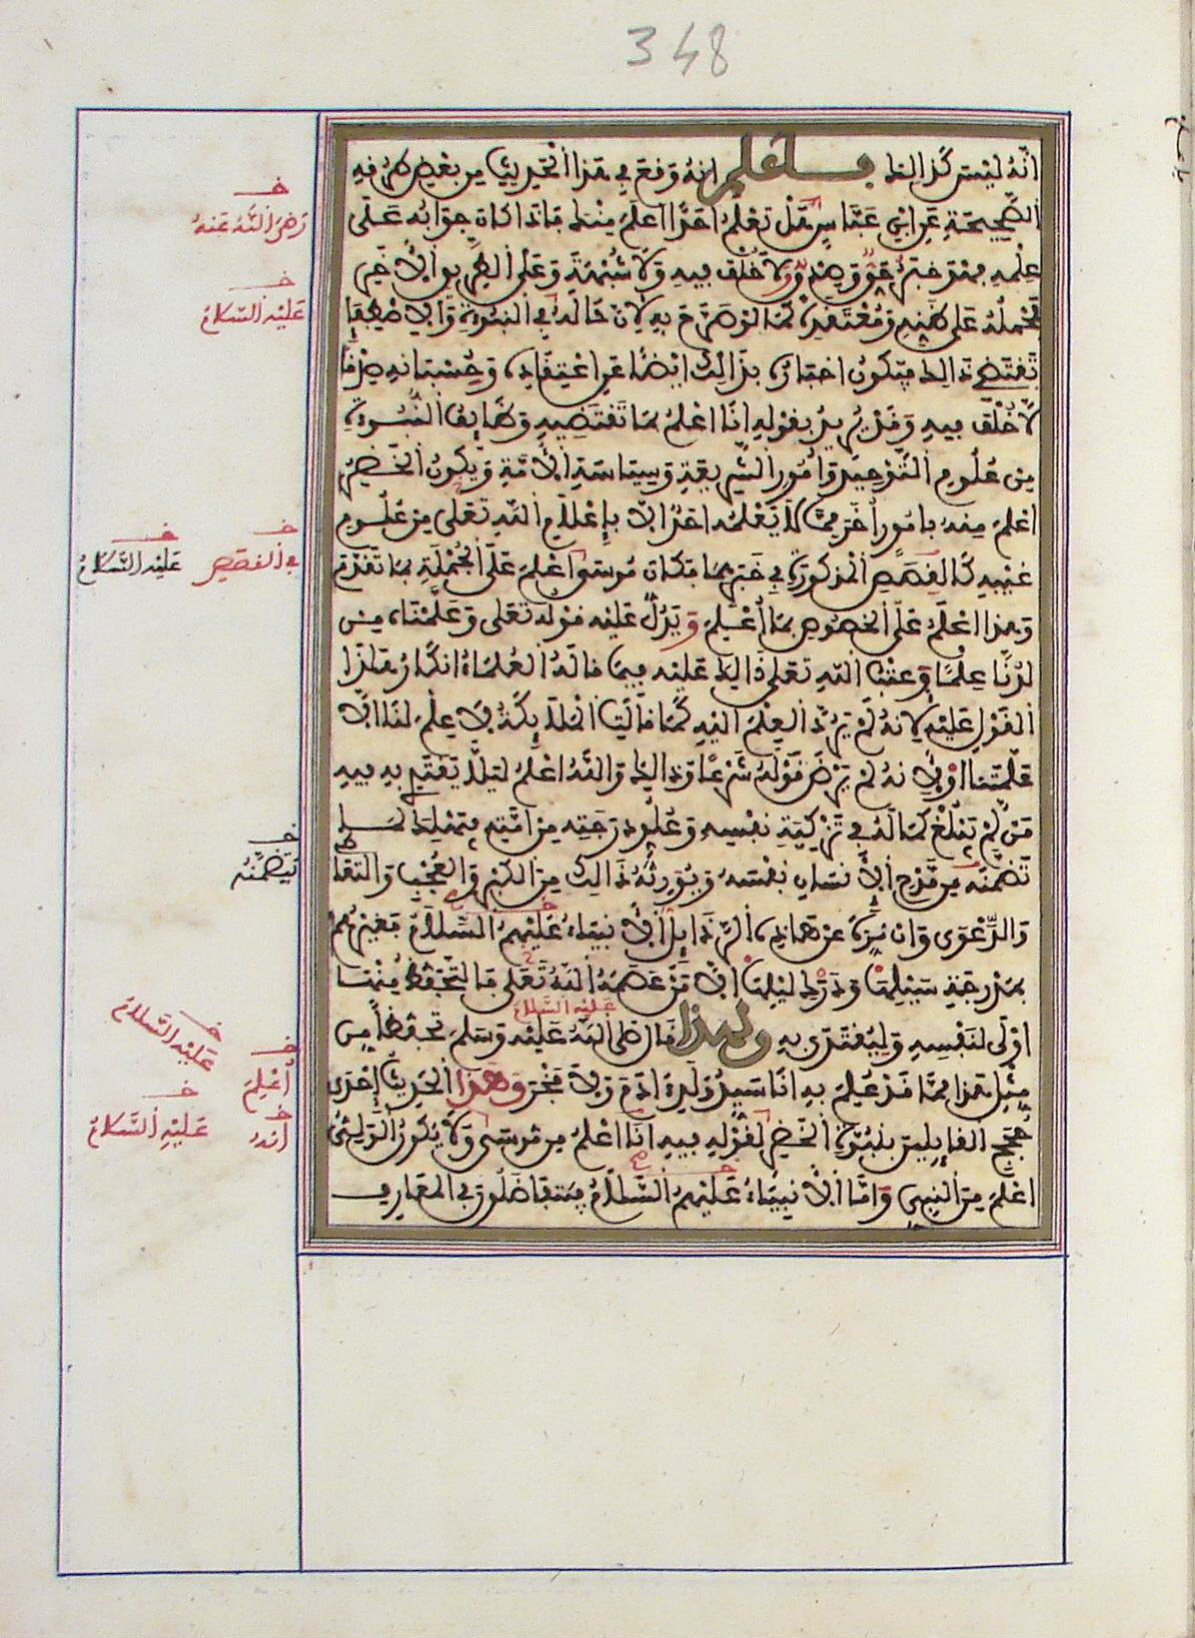 348
انه ليس كذالك فاعلم انه وقع في هذا الحديث من بعض طرقه
الصحيحة عن ابن عباس هل تعلم احدا اعلم منك فاذا كان جوابه على
علمه فهو خبر حق وصدق ولا خلف فيه ولا شبهة وعلى الطريق الاخر
فمحمله على ظنه ومعتقده كما لو صرح به لان حاله في النبوة والاصطفا
تقتضي ذالك فيكون اخباره بذالك ايضا عن اعتقاده وحسبانه صدقا
لا خلف فيه وقد يريد بقوله انا اعلم بما تقتضيه وظايف النبوة
من علوم التوحيد وامور الشريعة وسياسة الامة ويكون الخضر
اعلم منه بامور اخر مما لا يعلمه احد الا باعلام الله تعلى من علوم
غيبه كالقصص المذكورة في خبرهما فكان موسى اعلم على الجملة بما تقدم
وهذا اعلم على الخصوص بما اعلم ويدل عليه قوله تعلى وعلمناه من
لدنا علما وعتب الله تعلى ذالك عليه فيما قاله العلماء انكار هذا
القول عليه لانه لم يرد العلم اليه كما قالت الملايكة لا علم لنا الا
ما علمتنا او لانه لم يرض قوله شرعا وذالك والله اعلم ليلا يقتدي به فيه
من لم يبلغ كماله في تزكية نفسه وعلو درجته من امته فيهلك لما
تضمنه من مدح الانسان نفسه ويورثه ذالك من الكبر والعجب والتعا
والدعوى وان نزه عن هاذه الرذايل الانبياء عليهم السلام فغيرهم
بمدرجة سبيلها ودرك ليلها الا من عصمه الله تعلى فالتحفظ منها
اولى لنفسه وليقتدى به ولهذا قال صلى الله عليه وسلم تحفظا من
عليه السلام
مثل هذا مما قد علم به انا سيد ولد ءادم ولا فخر وهذا الحديث احدى
حجج القايلين بنبوة الخضر لقوله فيه انا اعلم من موسى ولا يكون الولي
اعلم من النبي واما الانبياء عليهم السلام فيتفاضلون في المعارف
خ
رضي الله عنه
خ
عليه السلام
خ
في القصص
خ
عليه السلام
خ
يتضمنه
خ
عليه السلام
خ
اعلم
خ
عليه السلام
خ
انه